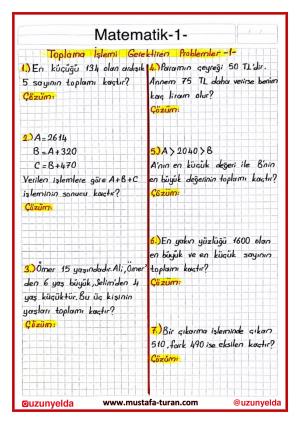 Matematik-1-
Toplama İşlemi Gerektiren Problemler -1-
1.) En küçüğü 134 olan ardışık
5 sayının toplamı kaçtır?
Çözüm:
2.) A=2614
B=A+320
C=B+470
Verilen işlemlere göre A+B+C
işleminin sonucu kaçtır?
Çözüm:
3.) Ömer 15 yaşındadır. Ali, Ömer'
den 6 yaş büyük, Selim'den 4
yaş küçüktür. Bu üç kişinin
yaşları toplamı kaçtır?
Çözüm:
4.) Paramın çeyreği 50 TL'dir.
Annem 75 TL daha verirse benim
kaç liram olur?
Çözüm:
5.) A > 2040 > B
A'nın en küçük değeri ile B'nin
en büyük değerinin toplamı kaçtır?
Çözüm:
6.) En yakın yüzlüğü 1600 olan
en büyük ve en küçük sayının
toplamı kaçtır?
Çözüm:
7.) Bir çıkarma işleminde çıkan
510, fark 490 ise eksilen kaçtır?
Çözüm:
@uzunyelda
www.mustafa-turan.com
@uzunyelda